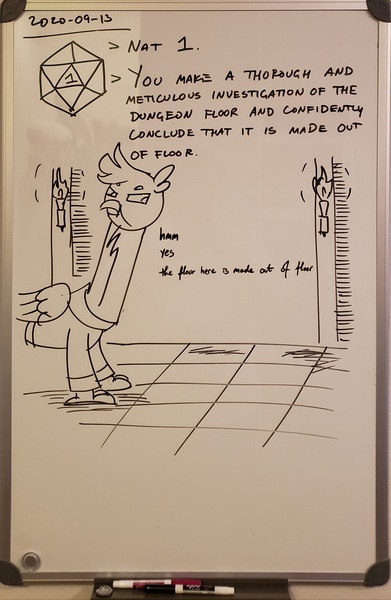 2020-09-13
> NAT 1.
1
> YOU MAKE A THOROUGH AND
METICULOUS INVESTIGATION OF THE
DUNGEON FLOOR AND CONFIDENTLY
CONCLUDE THAT IT IS MADE OUT
OF FLOOR.
hmm
yes
the floor here is made out of floor